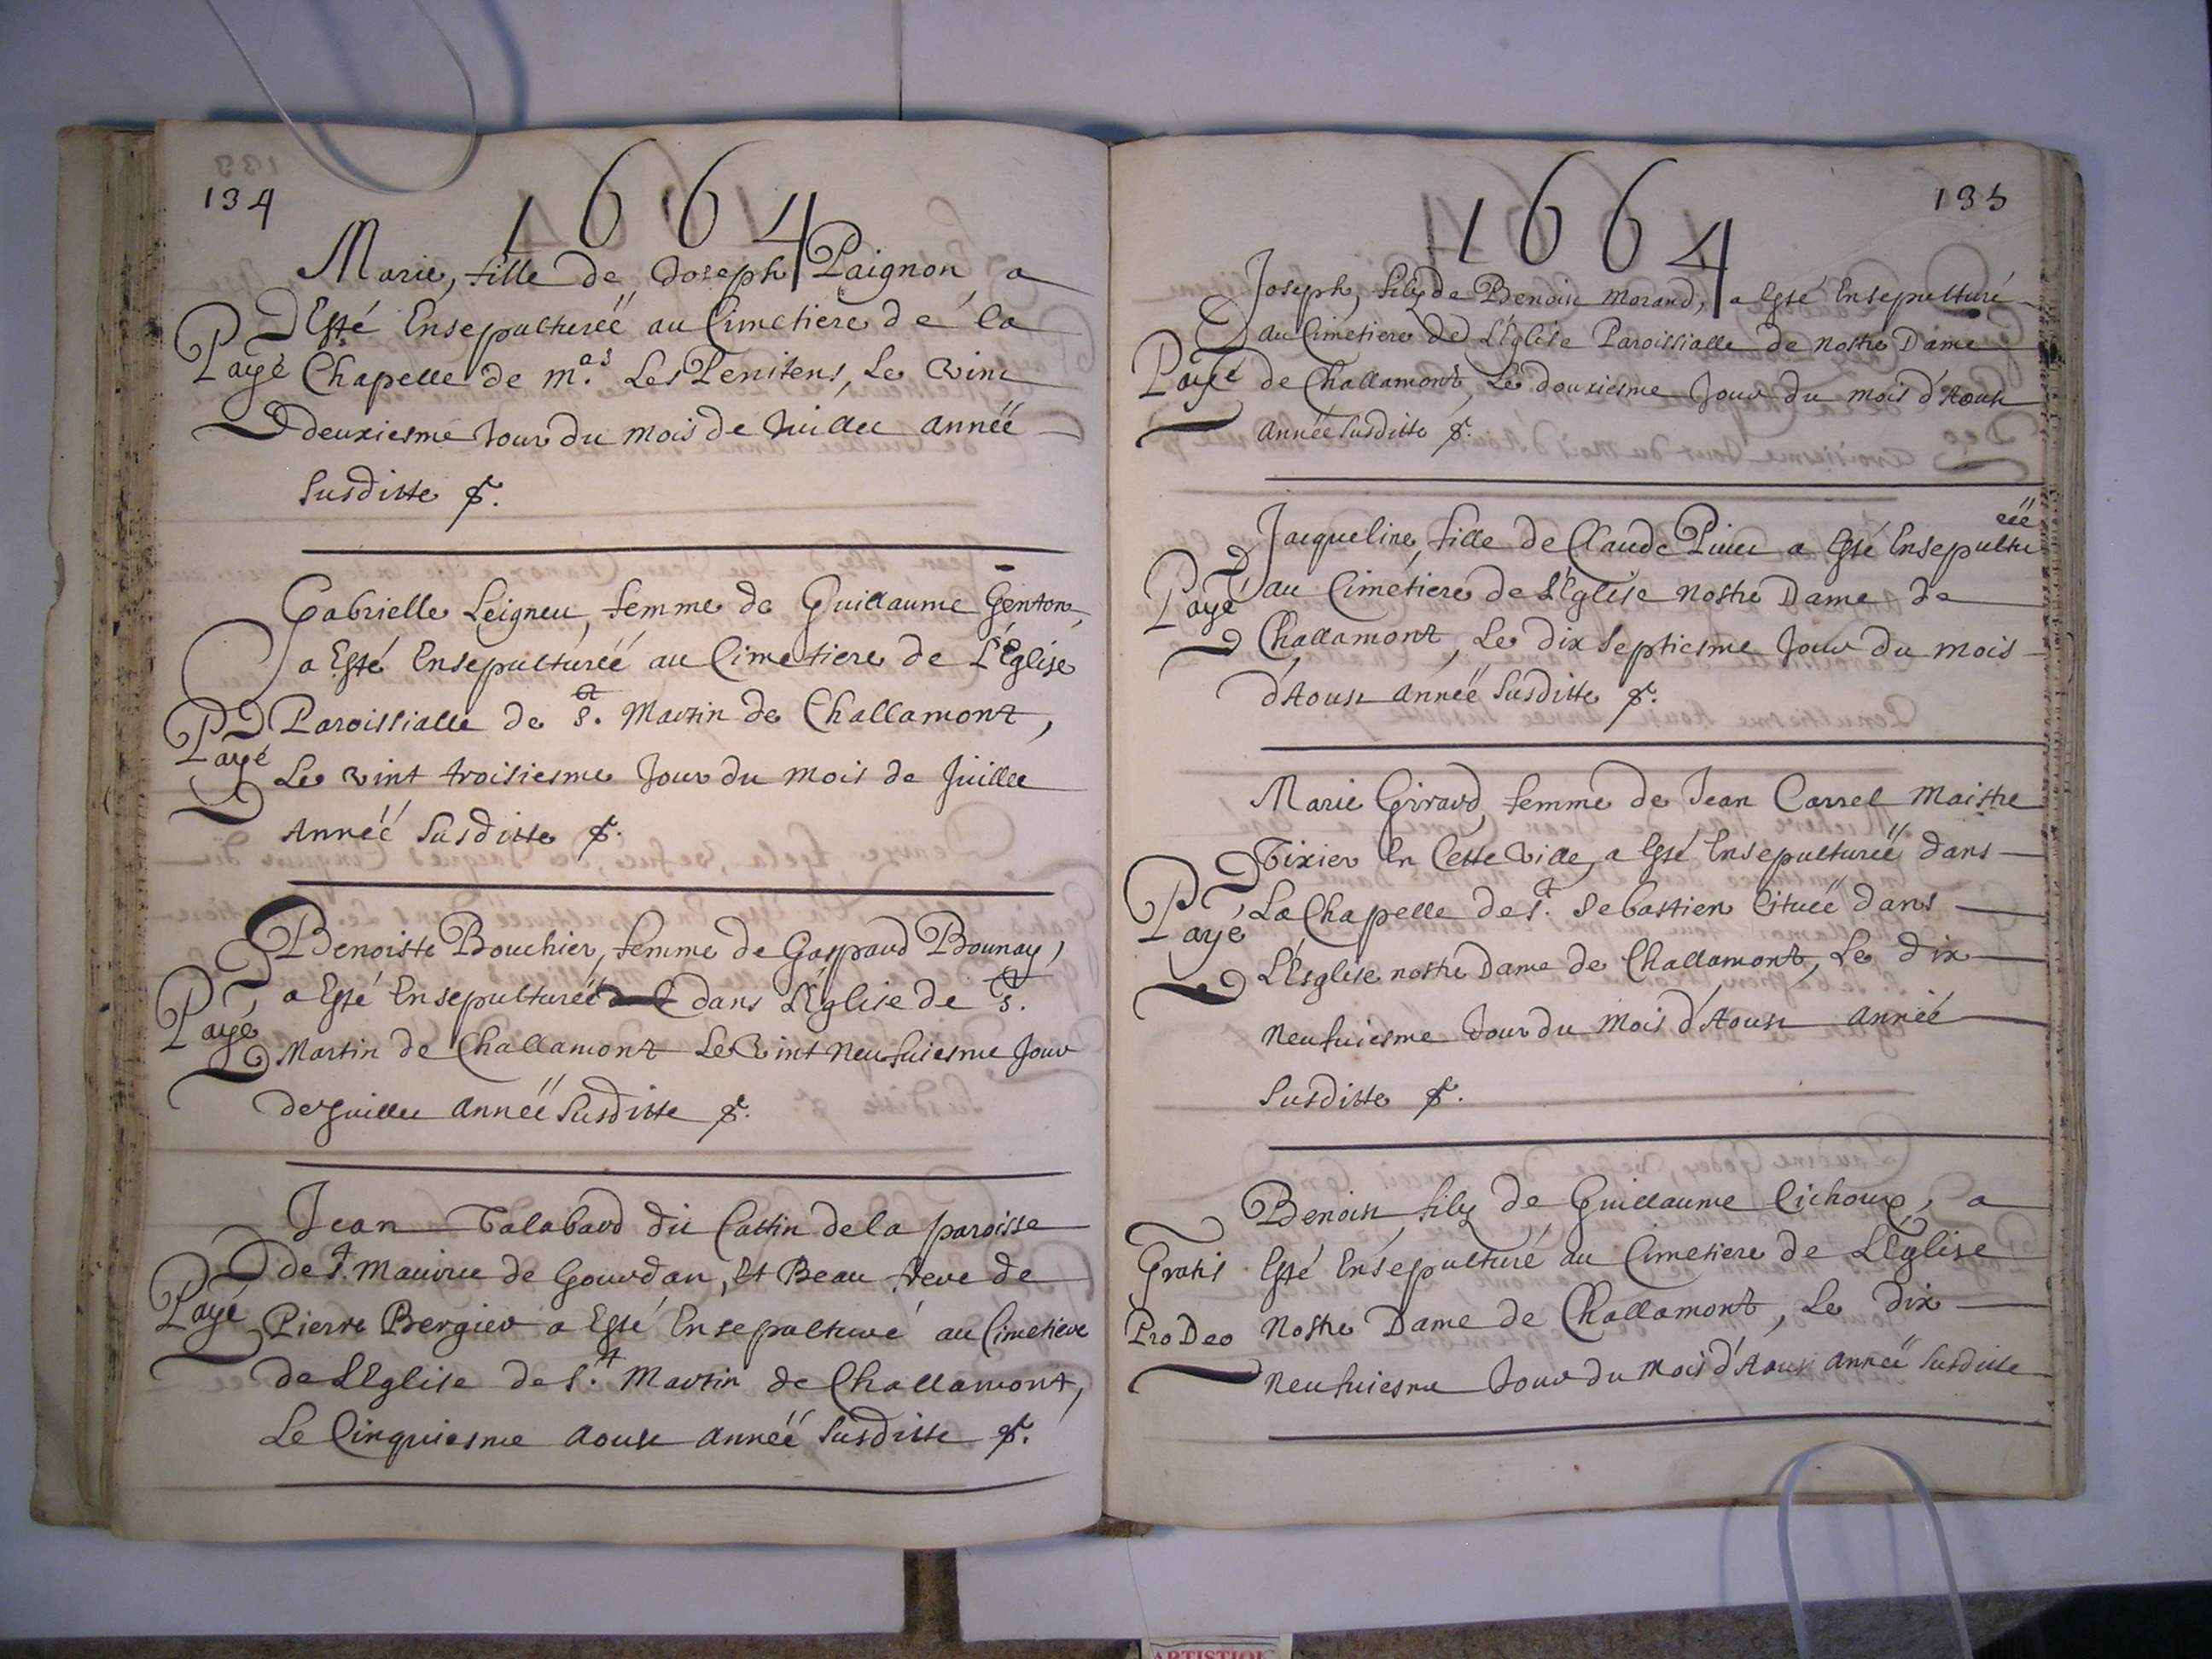 134
1664
Marie, fille de Joseph Paignon a
Esté Ensepulturéé au Cimetiere de la
Payé Chapelle de m.rs Les Penitens, Le vint
deuxiesme Jour du mois de Juillet année
susditte &.
Gabrielle Leigneu, femme de Guillaume Genton,
a Esté Ensepulturéé au Cimetiere de L'Église
Payé Paroissialle de S.t Martin de Challamont,
Le vint troisiesme Jour du mois de Juillet
Année susditte &.
Benoiste Bouchier, femme de Gaspard Bounay,
a Esté Ensepulturéé dans L'Église de S.t
Payé Martin de Challamont Le vint neufuiesme Jour
de Juillet année susditte &.
Jean Talabard dit Cattin de la paroisse
de S.t Mauire de Gourdan, Et Beau frere de
Payé Pierre Bergier a Esté Ensepulturé au Cimetiere
de L'Eglise de S.t Martin de Challamont,
Le Cinquiesme aoust année susditte &.
135
1664
Joseph, filz de Benoist Morand, a Esté Ensepulturé
au Cimetiere de L'Eglise Paroissialle de nostre Dame
Payé de Challamont, Le douxiesme Jour du mois d'Aoust
année susditte &.
Jacqueline, fille de Claude a Esté Ensepulturéé
Payé au Cimetiere de L'Eglise nostre Dame de
Challamont, Le dix septiesme Jour du mois
d'Aoust année susditte &.
Marie Giraud, femme de Jean Carrel Maistre
Tixier En Cette ville, a Esté Ensepulturéé dans
Payé La Chapelle de S.t Sebastien Cituéé dans
L'Esglise nostre Dame de Challamont, Le dix
neufuiesme Jour du Mois d'Aoust année
susditte &.
Benoist filz de Guillaume Cichoux, a
Gratis Esté Ensepulturé au Cimetiere de L'Eglise
Pro Deo Nostre Dame de Challamont, Le dix
neufuiesme Jour du mois d'Aoust année susditte
ARTISTIQU